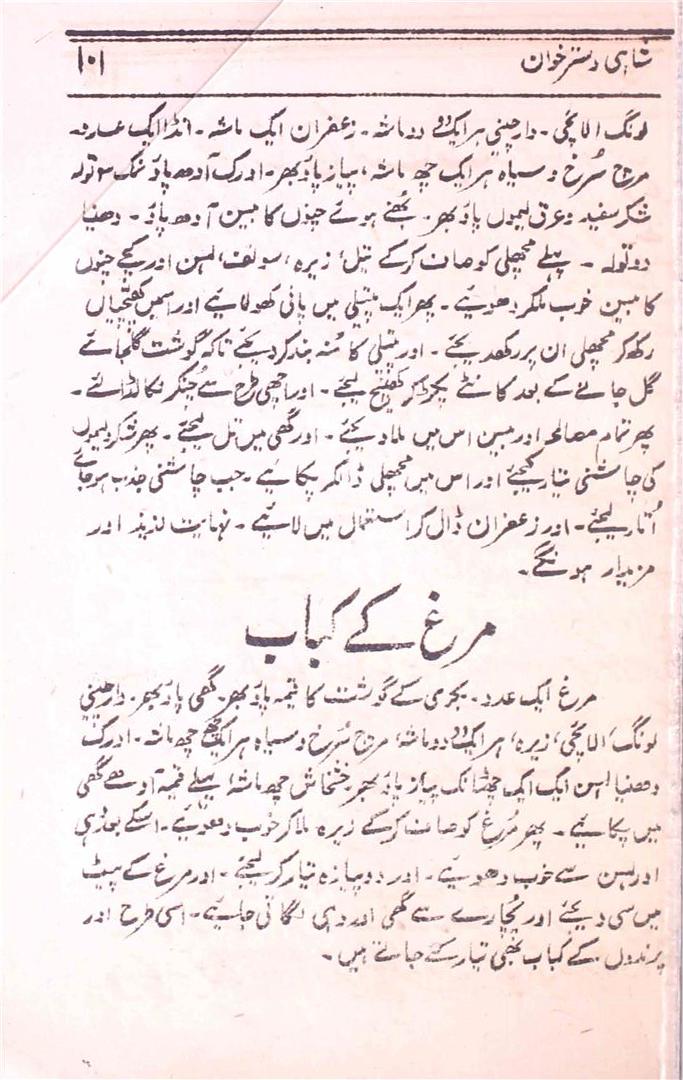 شاہی دسترخوان ۱۰۱
لونگ الائچی۔ دارچینی ہر ایک دو دو ماشہ۔ زعفران ایک ماشہ۔ انڈا ایک عدد۔
مرچ سُرخ و سیاہ ہر ایک چھ ماشہ، پیاز پاؤ بھر۔ ادرک آدھ پاؤ نمک ۳ تولہ
شکر سفید و عرق لیموں پاؤ بھر۔ بُھنے ہوئے چنوں کا مبین آدھ پاؤ۔ دھنیا
دو تولہ ۔ پہلے مچھلی کو صاف کرکے تیل، زیرہ، سونف، لہسن اور کچے چنوں
کا مبین خوب ملکر دھوئیے۔ پھر ایک پتیلی میں پانی کھولائیے اور اسمیں کھپچیاں
رکھ کر مچھلی ان پر رکھدیجئے ۔ اور پتیلی کا مُنہ بند کر دیجئے تاکہ گوشت گلجائے
گل جانے کے بعد کانٹے پکڑ کر کھینچ لیجئے ۔ اور اچھی طرح سے چُنکر نکالڈالئے۔
پھر تمام مصالحہ اور مبین اس میں ملا دیجئے ۔ اور گھی میں تل لیجئے۔ پھر شکر و لیموں
کی چاشنی تیار کیجئے اور اس میں مچھلی ڈالکر پکائیے ۔ جب چاشنی جذب ہو جائے
اُتار لیجئے۔ اور زعفران ڈال کر استعمال میں لائیے ۔ نہایت لذیذ اور
مزیدار ہونگے۔
مرغ کے کباب
مرغ ایک عدد۔ بکری کے گوشت کا قیمہ پاؤ بھر۔ گھی پاؤ بھر۔ دارچینی
لونگ، الائچی، زیرہ، ہر ایک دو دو ماشہ، مرچ سُرخ و سیاہ ہر ایک چھ چھ ماشہ۔ ادرک
دھنیا لہسن ایک ایک چھٹانک پیاز پاؤ بھر خشخاش چھ ماشہ، پہلے قیمہ آدھے گھی
میں پکائیے۔ پھر مُرغ کو صاف کرکے زیرہ ملا کر خوب دھوئیے۔ اسکے بعد دہی
اور لہسن سے خوب دھوئیے ۔ اور دو پیازہ تیار کر لیجئے ۔ اور مرغ کے پیٹ
میں سی دیجئے اور پُچارے سے گھی اور دہی لگاتی جائیے۔ اسی طرح اور
پرندوں کے کباب بھی تیار کئے جاتے ہیں۔